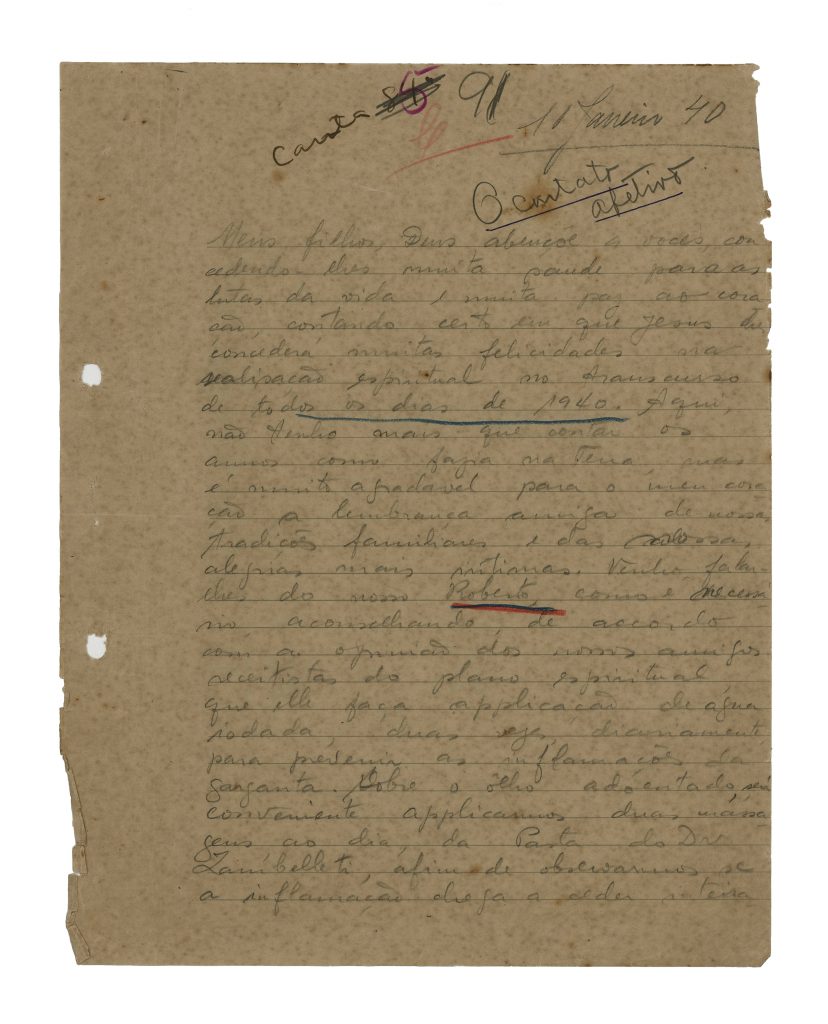 Carta 91
11 Janeiro 40
O contato
afetivo
Meus filhos, Deus abençõe a vocês, con
cedendo-lhes muita saude para as
lutas da vida e muita paz ao cora
ção, contando certo em que Jesus lhe
concederá muitas felicidades na
realisação espiritual no transcurso
de todos os dias de 1940. Aqui,
não tenho mais que contar os
annos como fazia na Terra, mas
é muito agradavel para o meu cora
ção a lembrança amiga de nossas
tradicões familiares e das nossas
alegrias mais intimas. Venho falar-
lhes do nosso Roberto, como é necessa
rio aconselhando, de accordo
com a opinião dos nossos amigos
receitistas do plano espiritual,
que elle faça applicação de agua
iodada, duas vezes, diariamente
para prevenir as inflamações da
garganta. Sobre o ôlho adoentado, será
conveniente applicarmos duas mássa
gens ao dia, da Pasta do Dr.
Zambelleti, afim de observarmos se
a inflamação chega a ceder inteira